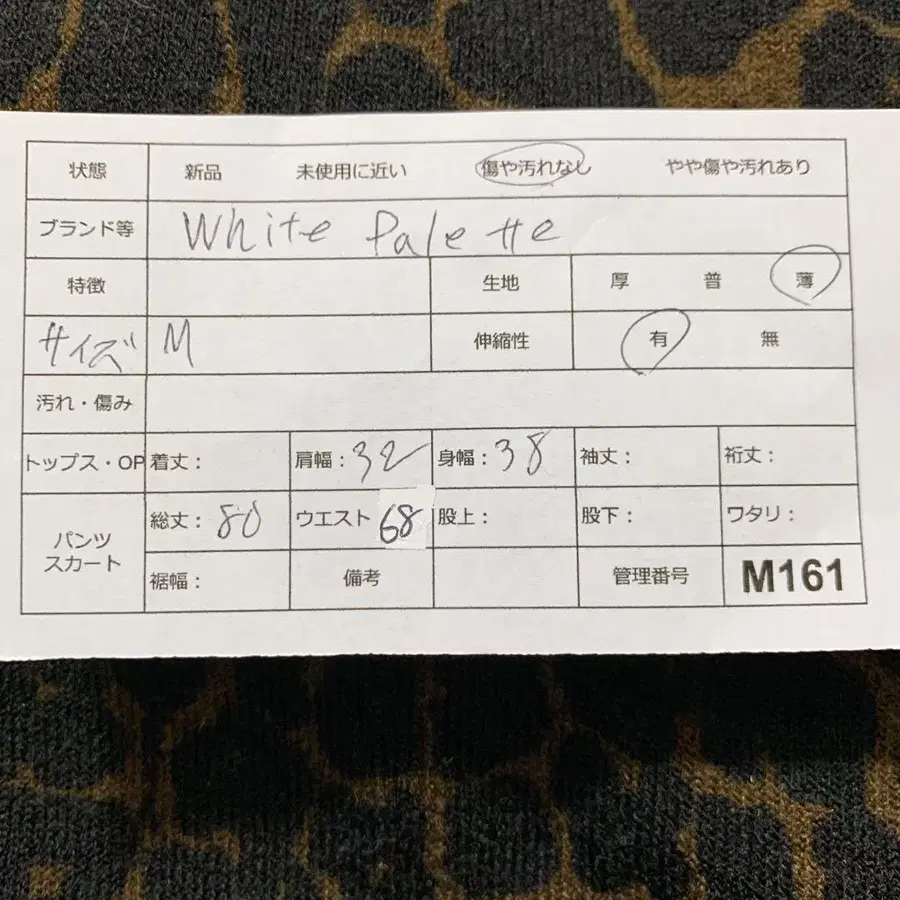 状態 新品 未使用に近い 傷や汚れなし やや傷や汚れあり
ブランド等 White Palette
特徴 生地 厚 普 薄
サイズ M 伸縮性 有 無
汚れ・傷み
トップス・OP 着丈: 肩幅:32 身幅:38 袖丈: 裄丈:
パンツ 総丈:80 ウエスト 68 股上: 股下: ワタリ:
スカート
裾幅: 備考 管理番号 M161